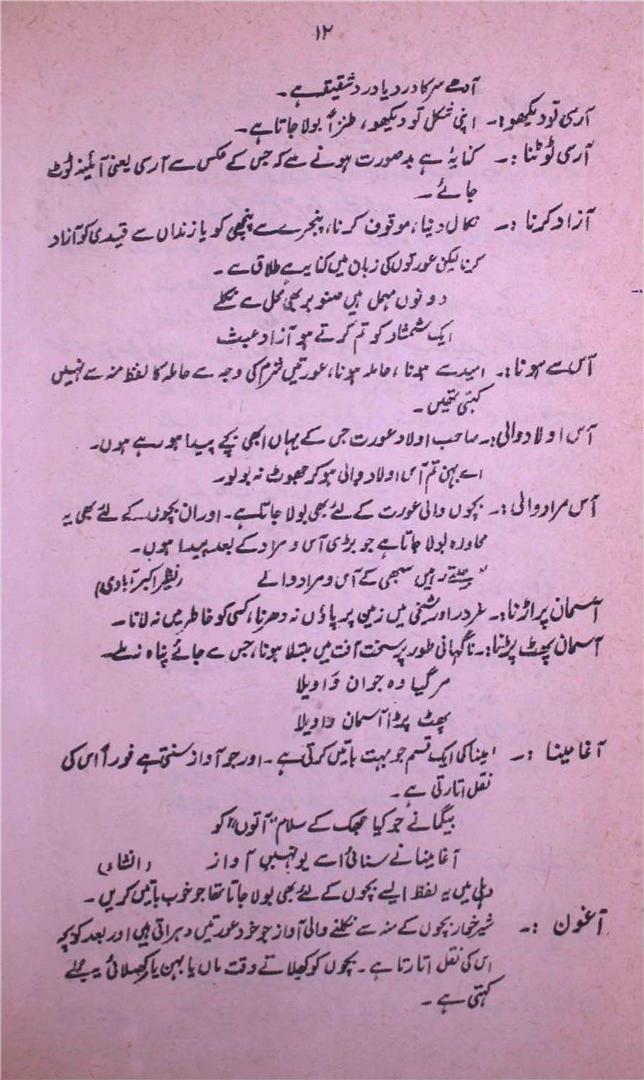 ۱۲
آدھے سر کا درد یا درد شقیقہ ہے۔
آرسی تو دیکھو:۔ اپنی شکل تو دیکھو، طنزاً بولا جاتا ہے۔
آرسی ٹوٹنا:۔ کنایۃً ہے بد صورت ہونے سے کہ جس کے عکس سے آرسی یعنی آئینہ ٹوٹ
جائے۔
آزاد کرنا:۔ نکال دینا، موقوف کرنا، پنجرے سے پنچھی کو یا زنداں سے قیدی کو آزاد
کرنا لیکن عورتوں کی زبان میں کنایہ ہے طلاق سے۔
دونوں مہمل ہیں صنوبر بھی محل سے نکلے
ایک شمشاد کو تم کرتے ہو آزاد عبث
آس سے ہونا:۔ امید سے ہونا، حاملہ ہونا، عورتیں شرم کی وجہ سے حاملہ کا لفظ منہ سے نہیں
کہتی تھیں۔
آس اولاد والی:۔ صاحب اولاد عورت جس کے یہاں ابھی بچے پیدا ہو رہے ہوں۔
اے بہن تم آس اولاد والی ہو کر جھوٹ نہ بولو۔
آس مراد والی:۔ بچوں والی عورت کے لئے بھی بولا جاتا ہے۔ اور ان بچوں کے لئے بھی یہ
محاورہ بولا جاتا ہے جو بڑی آس و مراد کے بعد پیدا ہوں۔
"جیتے رہیں سبھی کے آس و مراد والے (نظیر اکبر آبادی)
آسمان پر اڑنا:۔ غرور اور شیخی میں زمین پر پاؤں نہ دھرنا، کسی کو خاطر میں نہ لانا۔
آسمان پھٹ پڑنا:۔ ناگہانی طور پر سخت آفت میں مبتلا ہونا، جس سے جائے پناہ نہ ملے۔
مر گیا وہ جوان واویلا
پھٹ پڑا آسمان واویلا
آغا مینا:۔ مینا کی ایک قسم جو بہت باتیں کرتی ہے۔ اور جو آواز سنتی ہے فوراً اس کی
نقل اتارتی ہے۔
بیگما نے جو کیا جھک کے سلام "آتوں" کو
آغا مینا نے سنائی اسے یونہیں آواز (انشا)
دہلی میں یہ لفظ ایسے بچوں کے لئے بھی بولا جاتا تھا جو خوب باتیں کریں۔
آغون:۔ شیر خوار بچوں کے منہ سے نکلنے والی آواز جو خود عورتیں دہراتی ہیں اور بعد کو بچہ
اس کی نقل اتارتا ہے۔ بچوں کو کھلاتے وقت ماں یا بہن یا کھلائی یہ جملے
کہتی ہے۔